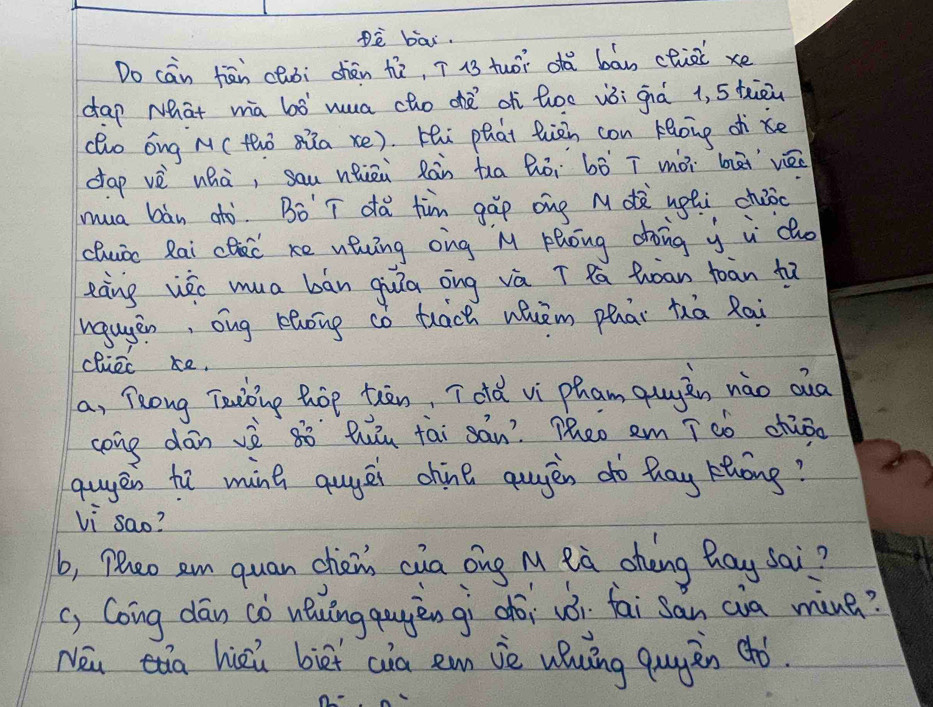 Đề bài.
Do cần tiền chơi điện tử, T 13 tuổi đã bán chiếc xe
đạp Nhật mà bố mua cho để đi học với giá 1,5 triệu
cho ông M (thợ sửa xe). Khi phát hiện con không đi xe
đạp về nhà, sau nhiều lần tra hỏi bố T mới biết việc
mua bán đó. Bố T đã tìm gặp ông M đề nghị được
chuộc lại chiếc xe nhưng ông M không đồng ý vì cho
rằng việc mua bán giữa ông và T là hoàn toàn tự
nguyện, ông không có trách nhiệm phải trả lại
chiếc xe.
a, Trong Trường hợp trên, T đã vi phạm quyền nào của
công dân về sở hữu tài sản? Theo em T có được
quyền tự mình quyết định quyền đó hay không?
Vì sao?
b, Theo em quan điểm của ông M là đúng hay sai?
c, Công dân có những quyền gì đối với tài sản của mình?
Nêu hiểu biết của em về những quyền đó.